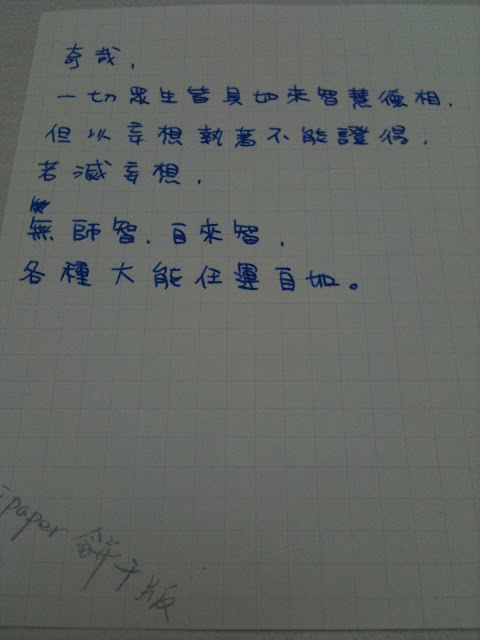 奇哉,
一切眾生皆具如來智慧德相.
但以妄想執著不能證得.
若滅妄想,
無師智.自來智,
各種大能任運自如。
paper 餅干版